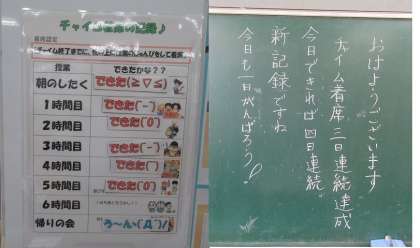 授業 できたかな??
朝のしたく できた(≧▽≦)
1時間目 できた(^-^)
2時間目 できた(^0^)
3時間目 できた(^-^)
4時間目
5時間目 できた(^0^)
6時間目
帰りの会 う〜ん(Д)
おはようございます
チャイム着席三日連続達成
今日できれば四日連続
新記録ですね
今日も一日がんばろう!